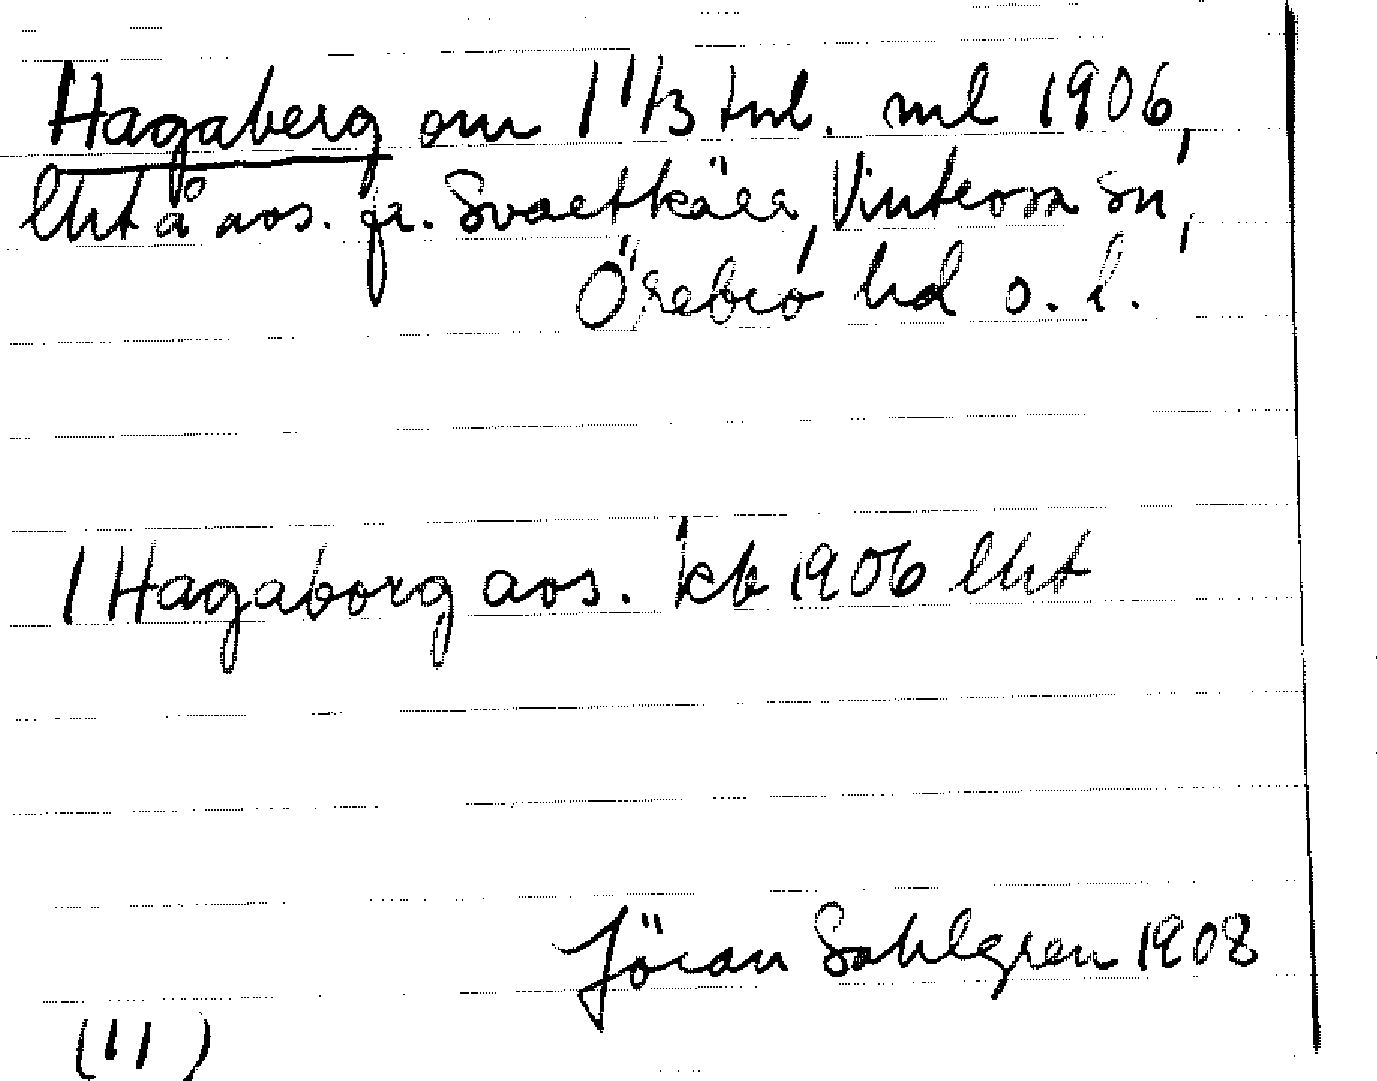 Hagaberg om 1 1/3 tnl. ml 1906,
lht å avs. fr. Svartkärr, Vintrosa sn,
Örebro hd o. l.
1 Hagaborg avs. kb 1906 lht
Jöran Sahlgren 1908
(11)